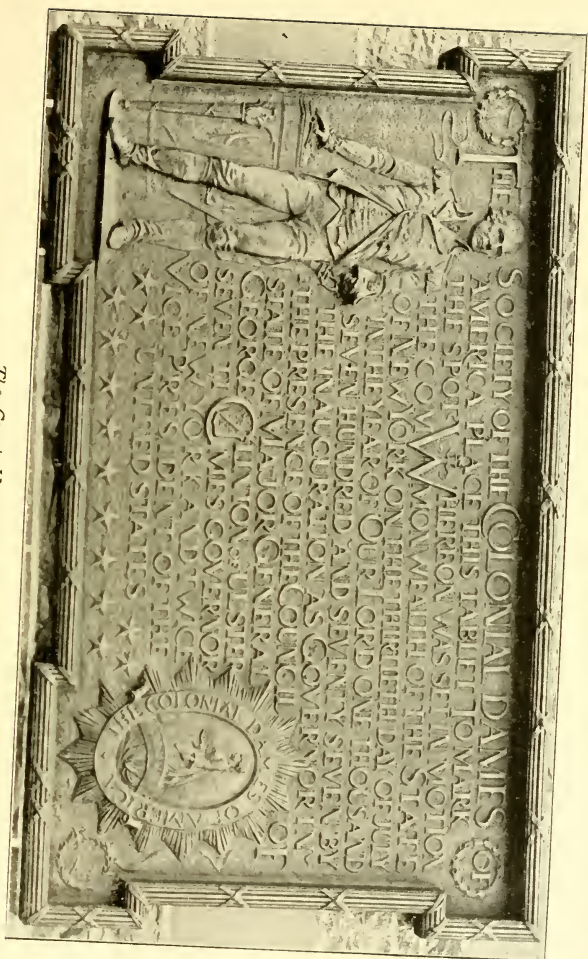 THE SOCIETY OF THE COLONIAL DAMES OF
AMERICA PLACE THIS TABLET TO MARK
THE SPOT WHEREON WAS SET IN MOTION
THE COMMONWEALTH OF THE STATE
OF NEW YORK ON THE THIRTIETH DAY OF JULY
IN THE YEAR OF OUR LORD ONE THOUSAND
SEVEN HUNDRED AND SEVENTY SEVEN BY
THE INAUGURATION AS GOVERNOR IN
THE PRESENCE OF THE COUNCIL OF
STATE OF MAJOR GENERAL
GEORGE CLINTON OF ULSTER
SEVEN TIMES GOVERNOR
OF NEW YORK AND TWICE
VICE PRESIDENT OF THE
UNITED STATES
THE COLONIAL DAMES OF AMERICA